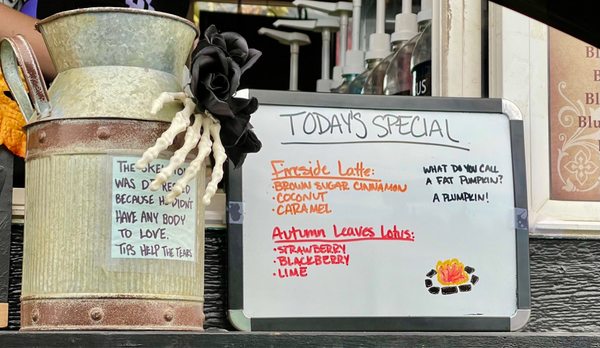 THE SKELETON
WAS DEPRESSED
BECAUSE HE DIDN'T
HAVE ANY BODY
TO LOVE.
TIPS HELP THE TEARS
TODAY'S SPECIAL
Fireside Latte:
• BROWN SUGAR CINNAMON
• COCONUT
• CARAMEL
Autumn Leaves Lotus:
• STRAWBERRY
• BLACKBERRY
• LIME
WHAT DO YOU CALL
A FAT PUMPKIN?
A PLUMPKIN!
US
Bl
Bl
B
Blu
Blu